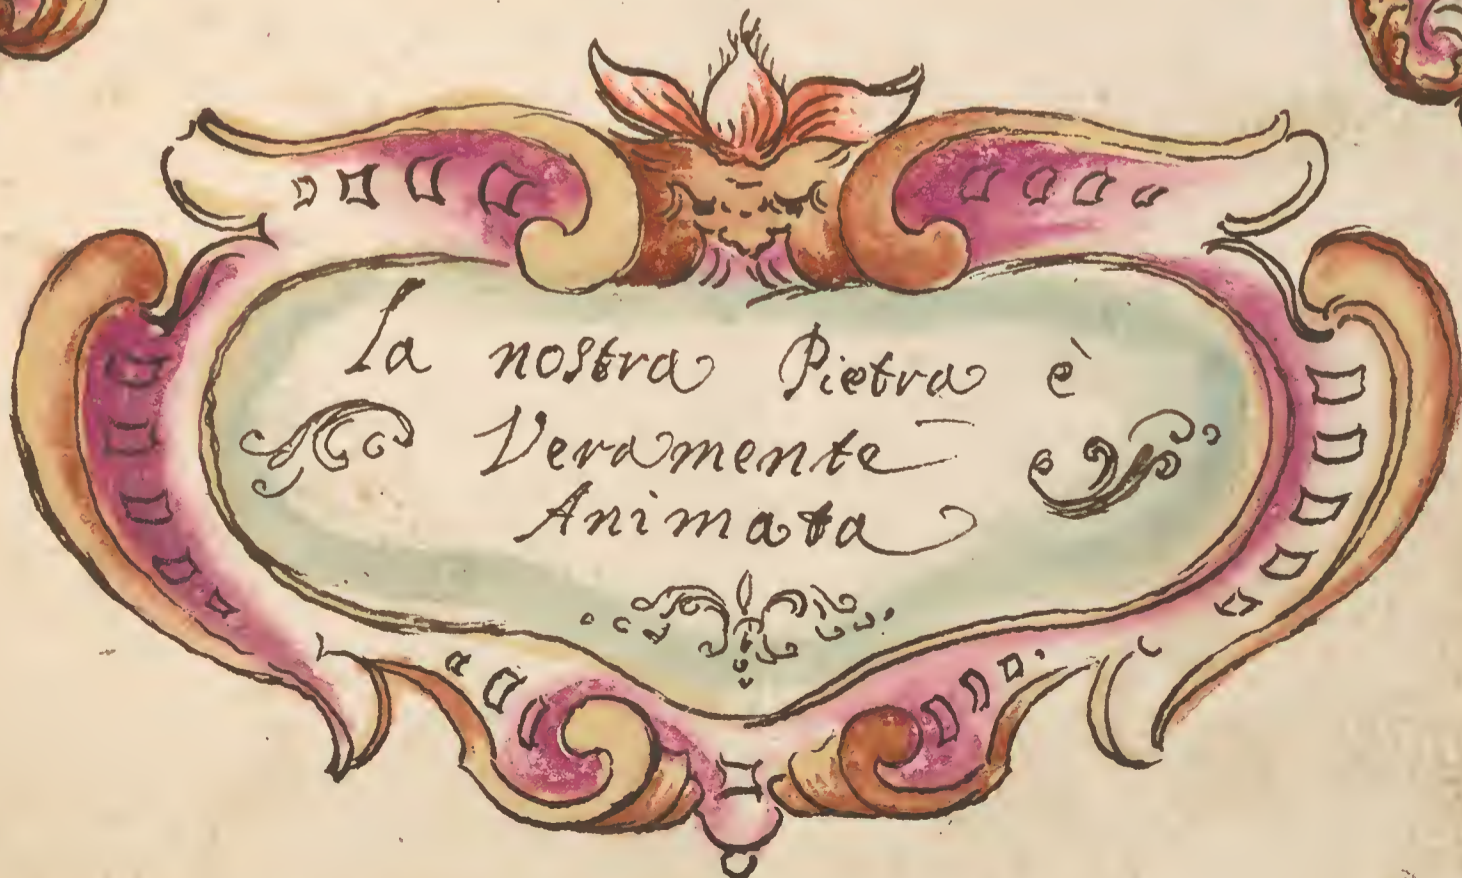 la nostra Pietra è
Veramente
Animata